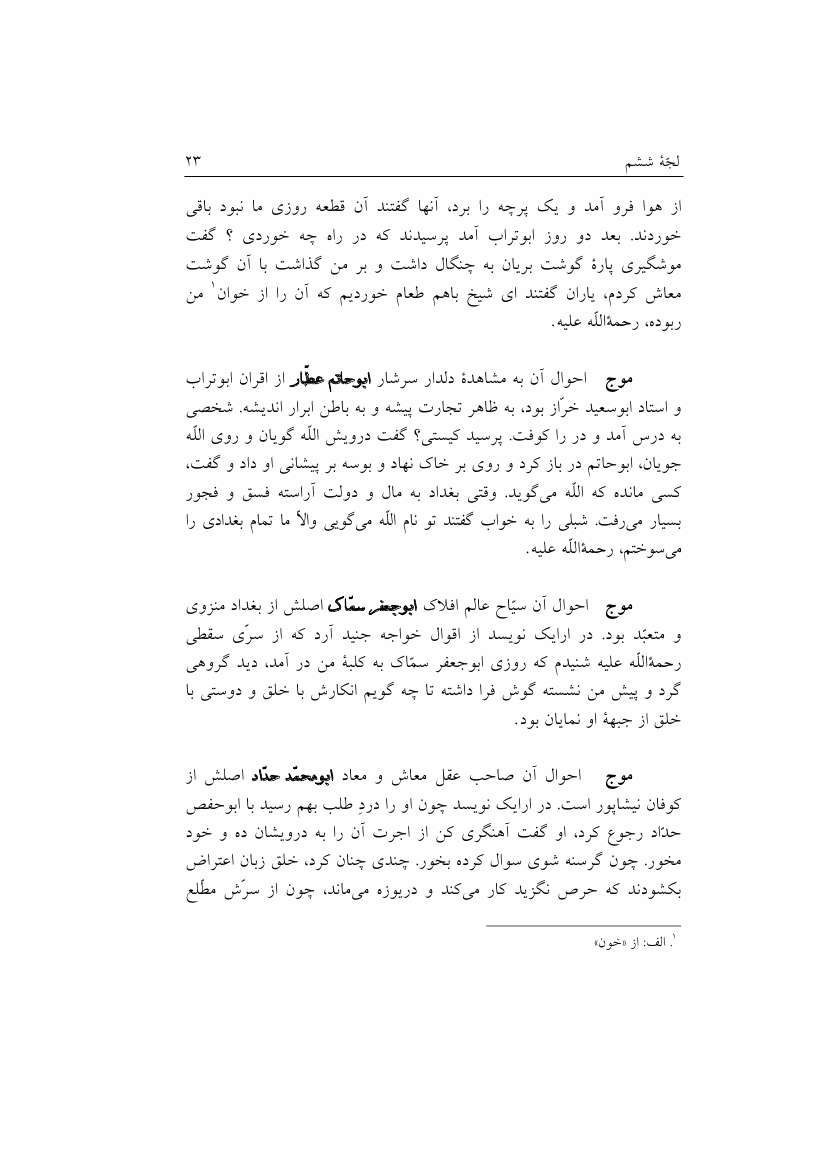 لجّهٔ ششم ۲۳
از هوا فرو آمد و یک پرچه را برد، آنها گفتند آن قطعه روزی ما نبود باقی
خوردند. بعد دو روز ابوتراب آمد پرسیدند که در راه چه خوردی ؟ گفت
موشگیری پارهٔ گوشت بریان به چنگال داشت و بر من گذاشت با آن گوشت
معاش کردم، یاران گفتند ای شیخ باهم طعام خوردیم که آن را از خوان۱ من
ربوده، رحمةاللّه علیه.
موج احوال آن به مشاهدهٔ دلدار سرشار ابوحاتم عطّار از اقران ابوتراب
و استاد ابوسعید خرّاز بود، به ظاهر تجارت پیشه و به باطن ابرار اندیشه. شخصی
به درس آمد و در را کوفت. پرسید کیستی؟ گفت درویش اللّه گویان و روی اللّه
جویان، ابوحاتم در باز کرد و روی بر خاک نهاد و بوسه بر پیشانی او داد و گفت،
کسی مانده که اللّه می‌گوید. وقتی بغداد به مال و دولت آراسته فسق و فجور
بسیار می‌رفت. شبلی را به خواب گفتند تو نام اللّه می‌گویی والاّ ما تمام بغدادی را
می‌سوختم، رحمةاللّه علیه.
موج احوال آن سیّاح عالم افلاک ابوجعفر سمّاک اصلش از بغداد منزوی
و متعبّد بود. در ارایک نویسد از اقوال خواجه جنید آرد که از سرّی سقطی
رحمةاللّه علیه شنیدم که روزی ابوجعفر سمّاک به کلبهٔ من در آمد، دید گروهی
گرد و پیش من نشسته گوش فرا داشته تا چه گویم انکارش با خلق و دوستی با
خلق از جبههٔ او نمایان بود.
موج احوال آن صاحب عقل معاش و معاد ابومحمّد حدّاد اصلش از
کوفان نیشاپور است. در ارایک نویسد چون او را دردِ طلب بهم رسید با ابوحفص
حدّاد رجوع کرد، او گفت آهنگری کن از اجرت آن را به درویشان ده و خود
مخور. چون گرسنه شوی سوال کرده بخور. چندی چنان کرد، خلق زبان اعتراض
بکشودند که حرص نگزید کار می‌کند و دریوزه می‌ماند، چون از سرّش مطّلع
۱. الف: از «خون»